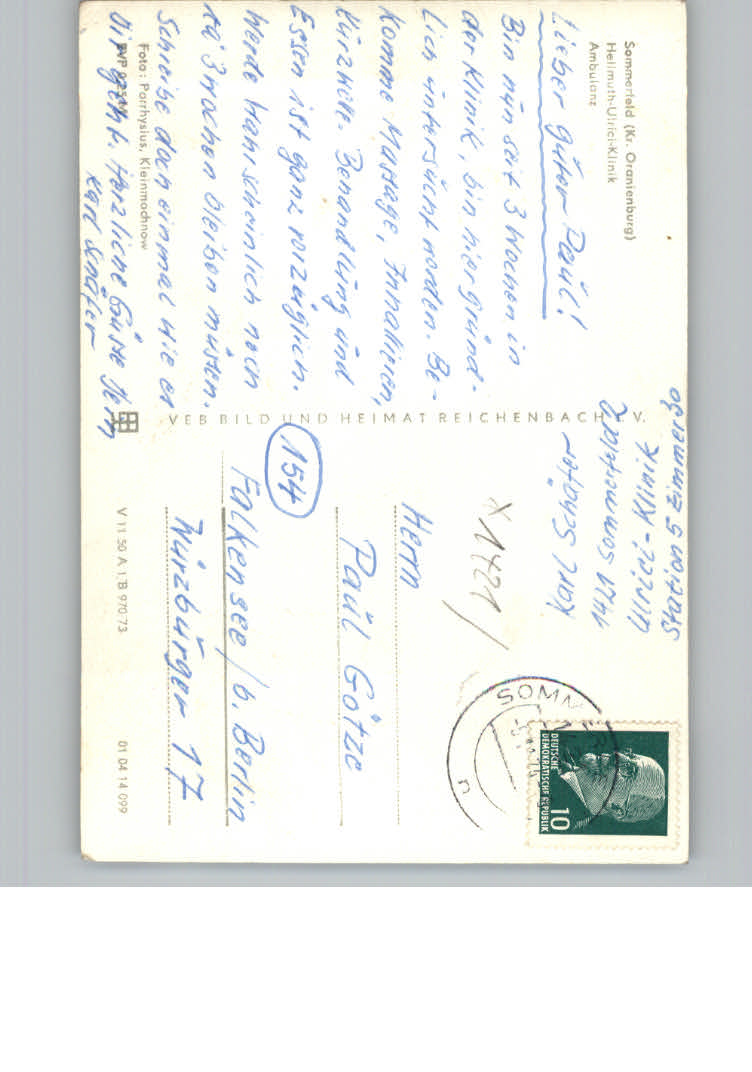 Sommerfeld (Kr. Oranienburg)
Hellmuth-Ulrici-Klinik
Ambulanz
Lieber guter Paul!
Bin nun seit 3 Wochen in
der Klinik, bin hier gründ-
lich untersucht worden. Be-
komme Massage, Inhalieren,
Behandlung und
Essen ist ganz vorzüglich.
Werde wahrscheinlich noch
3 Wochen bleiben müssen.
Schreibe doch einmal wie es
Dir geht. Herzliche Grüße
Karl Schäfer
Foto: Parrhysius, Kleinmachnow
VEB BILD UND HEIMAT REICHENBACH I. V.
V 11 50 A 1 B 970 73
01 04 14 099
Karl Schäfer
1741 Sommerfeld
Ulrici-Klinik
Station 5 Zimmer
X 1421
Herrn
Paul Götze
154
Falkensee / b. Berlin
Würzburger 17
SOMM
DEUTSCHE
DEMOKRATISCHE REPUBLIK
10